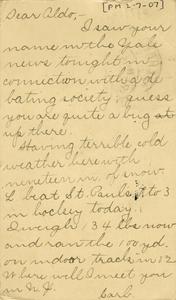 [PM 2-7-07]
Dear Aldo,-
I saw your
name in the Yale
news tonight in
connection with a de
bating society. guess
you are quite a bug at
up there.
Having terrible cold
weather here with
nineteen in. of snow.
L beat St. Pauls to 3
in hockey today.
I weigh 134 lbs now
and ran the 100 yd.
on indoor track in 12
Where will I meet you
in N.Y.
Carl.